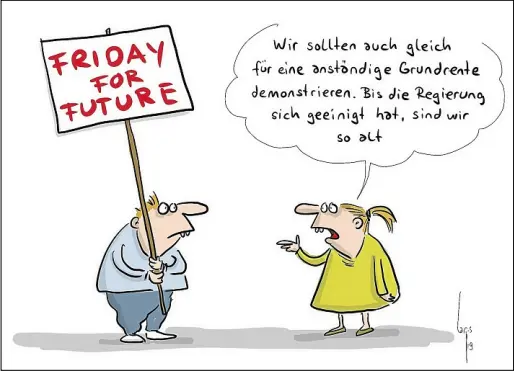 FRIDAY
FOR
FUTURE
Wir sollten auch gleich
für eine anständige Grundrente
demonstrieren. Bis die Regierung
sich geeinigt hat, sind wir
so alt